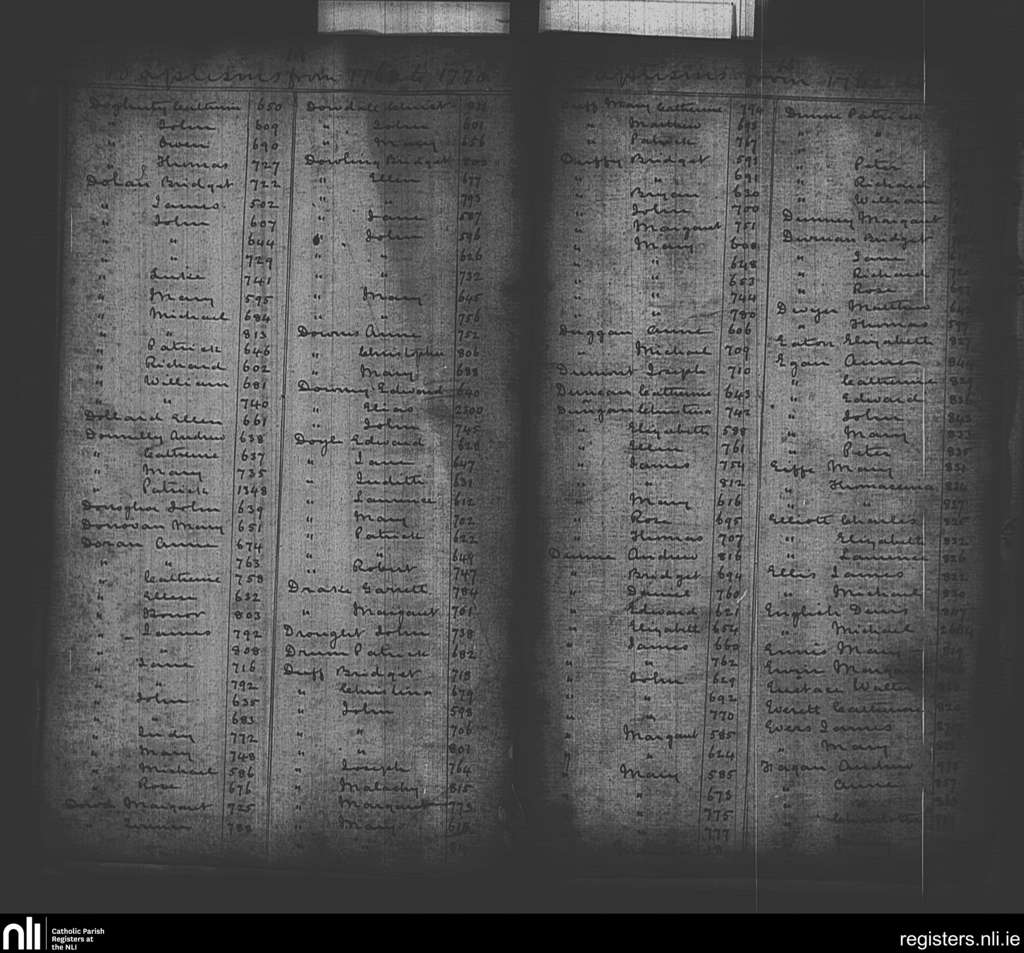 Baptisms from 176 to 1770
Dogherty Catherine 650
" John 609
" Owen 690
" Thomas 727
Dolan Bridget 722
" James 502
" John 607
" " 644
" " 729
" Luke 741
" Mary 595
" Michael 684
" " 813
" Patrick 646
" Richard 602
" William 681
" " 740
Dollard Ellen 661
Donnelly Andrew 638
" Catherine 637
" Mary 735
" Patrick 1348
Donoghoe John 639
Donovan Mary 651
Doran Anne 674
" " 763
" Catherine 758
" Ellen 632
" Honor 803
" James 792
" " 808
" Jane 716
" " 792
" John 635
" " 683
" Judy 772
" Mary 748
" Michael 586
" Rose 676
Margaret 725
788
Dowdall Christ
" John 601
" Mary 656
Dowling Bridget
" Ellen 677
" " 793
" Jane 587
" John 596
" " 626
" " 732
" Mary 645
" " 756
Downs Anne 752
" Christopher 806
" Mary 688
Downey Edward 640
" Elias 2300
" John 745
Doyle Edward 628
" Jane 647
" Judith 631
" Laurence 612
" Mary 702
" Patrick 622
" " 649
" Robert 747
Drake Garrett 784
" Margaret 761
Drought John 738
Drum Patrick 682
Duff Bridget 718
" Christina 679
" John 598
" " 706
" " 801
" Joseph 764
" Malachy 815
" Margaret 773
" Mary 618
Baptisms from 176
Duff Mary Catherine 794
" Matthew 693
" Patrick 767
Duffy Bridget 591
" " 691
" Bryan 620
" John 700
" Margaret 751
" Mary 608
" " 648
" " 653
" " 744
" " 780
Duggan Anne 606
" Michael 709
Dumont Joseph 710
Duncan Catherine 643
Dungan Christina 742
" Elizabeth 588
" Ellen 761
" James 754
" " 812
" Mary 616
" Rose 695
" Thomas 707
Dunne Andrew 816
" Bridget 694
" Daniel 760
" Edward 621
" Elizabeth 654
" James 660
" " 762
" John 629
" " 692
" " 770
" Margaret 585
" " 624
" Mary 585
" " 673
" " 775
" " 777
Dunne Patrick
" "
" Peter
" Richard
" William
Dunney Margaret
Durnan Bridget
" Jane
" Richard
" Rose
Dwyer Matthew
" Thomas
Eaton Elizabeth 827
Egan Anne 844
" Catherine 829
" Edward 836
" John 843
" Mary 833
" Peter 835
Eiffe Mary 831
" Thomasina
" " 837
Elliott Charles 825
" Elizabeth 832
" Laurence 826
Ellis James 822
" Michael 830
English Denis
" Michael
Ennis Mary 819
Margaret
Eustace Walter
Everett Catherine 820
Evers James
" Mary
Fagan Andrew
" Anne 857
"
"
NLI
Catholic Parish
Registers at
the NLI
registers.nli.ie